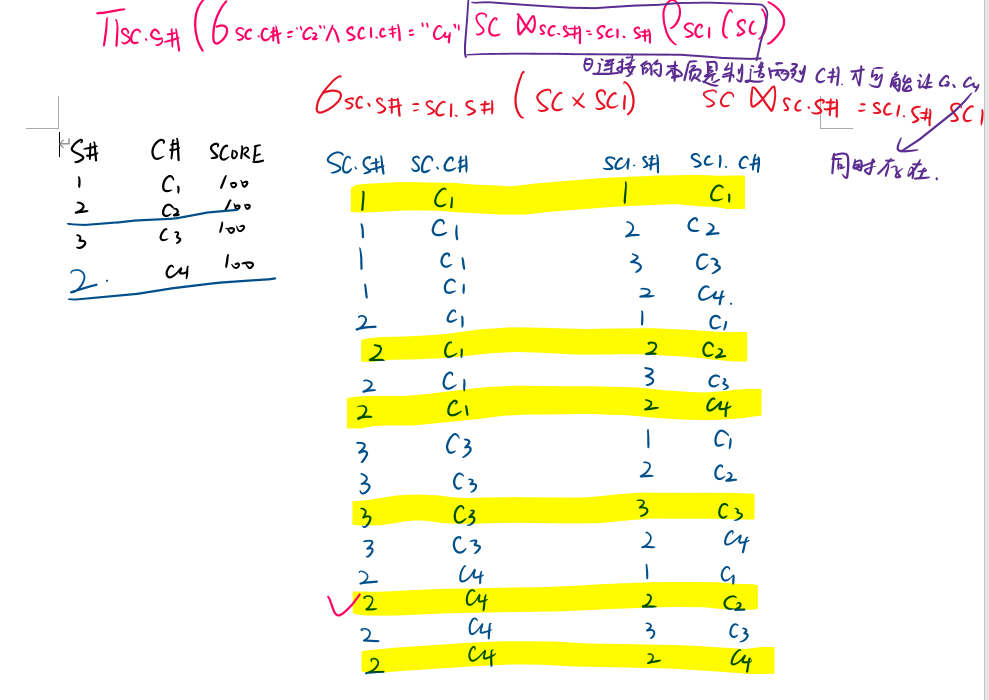 ∏SC.S#(σSC.C#="C2"∧SC1.C#="C4" SC⋈SC.S#=SC1.S# (ρSC1(SC)))
θ连接的本质是制造两列C#.才可能让C2、C4
σSC.S#=SC1.S#(SC×SC1) SC⋈SC.S#=SC1.S# SC1
同时存在.
S# C# SCORE
1 C1 100
2 C2 100
3 C3 100
2. C4 100
SC.S# SC.C# SC1.S# SC1.C#
1 C1 1 C1
1 C1 2 C2
1 C1 3 C3
1 C1 2 C4.
2 C1 1 C1
2 C1 2 C2
2 C1 3 C3
2 C1 2 C4
3 C3 1 C1
3 C3 2 C2
3 C3 3 C3
3 C3 2 C4
2 C4 1 C1
✓2 C4 2 C2
2 C4 3 C3
2 C4 2 C4